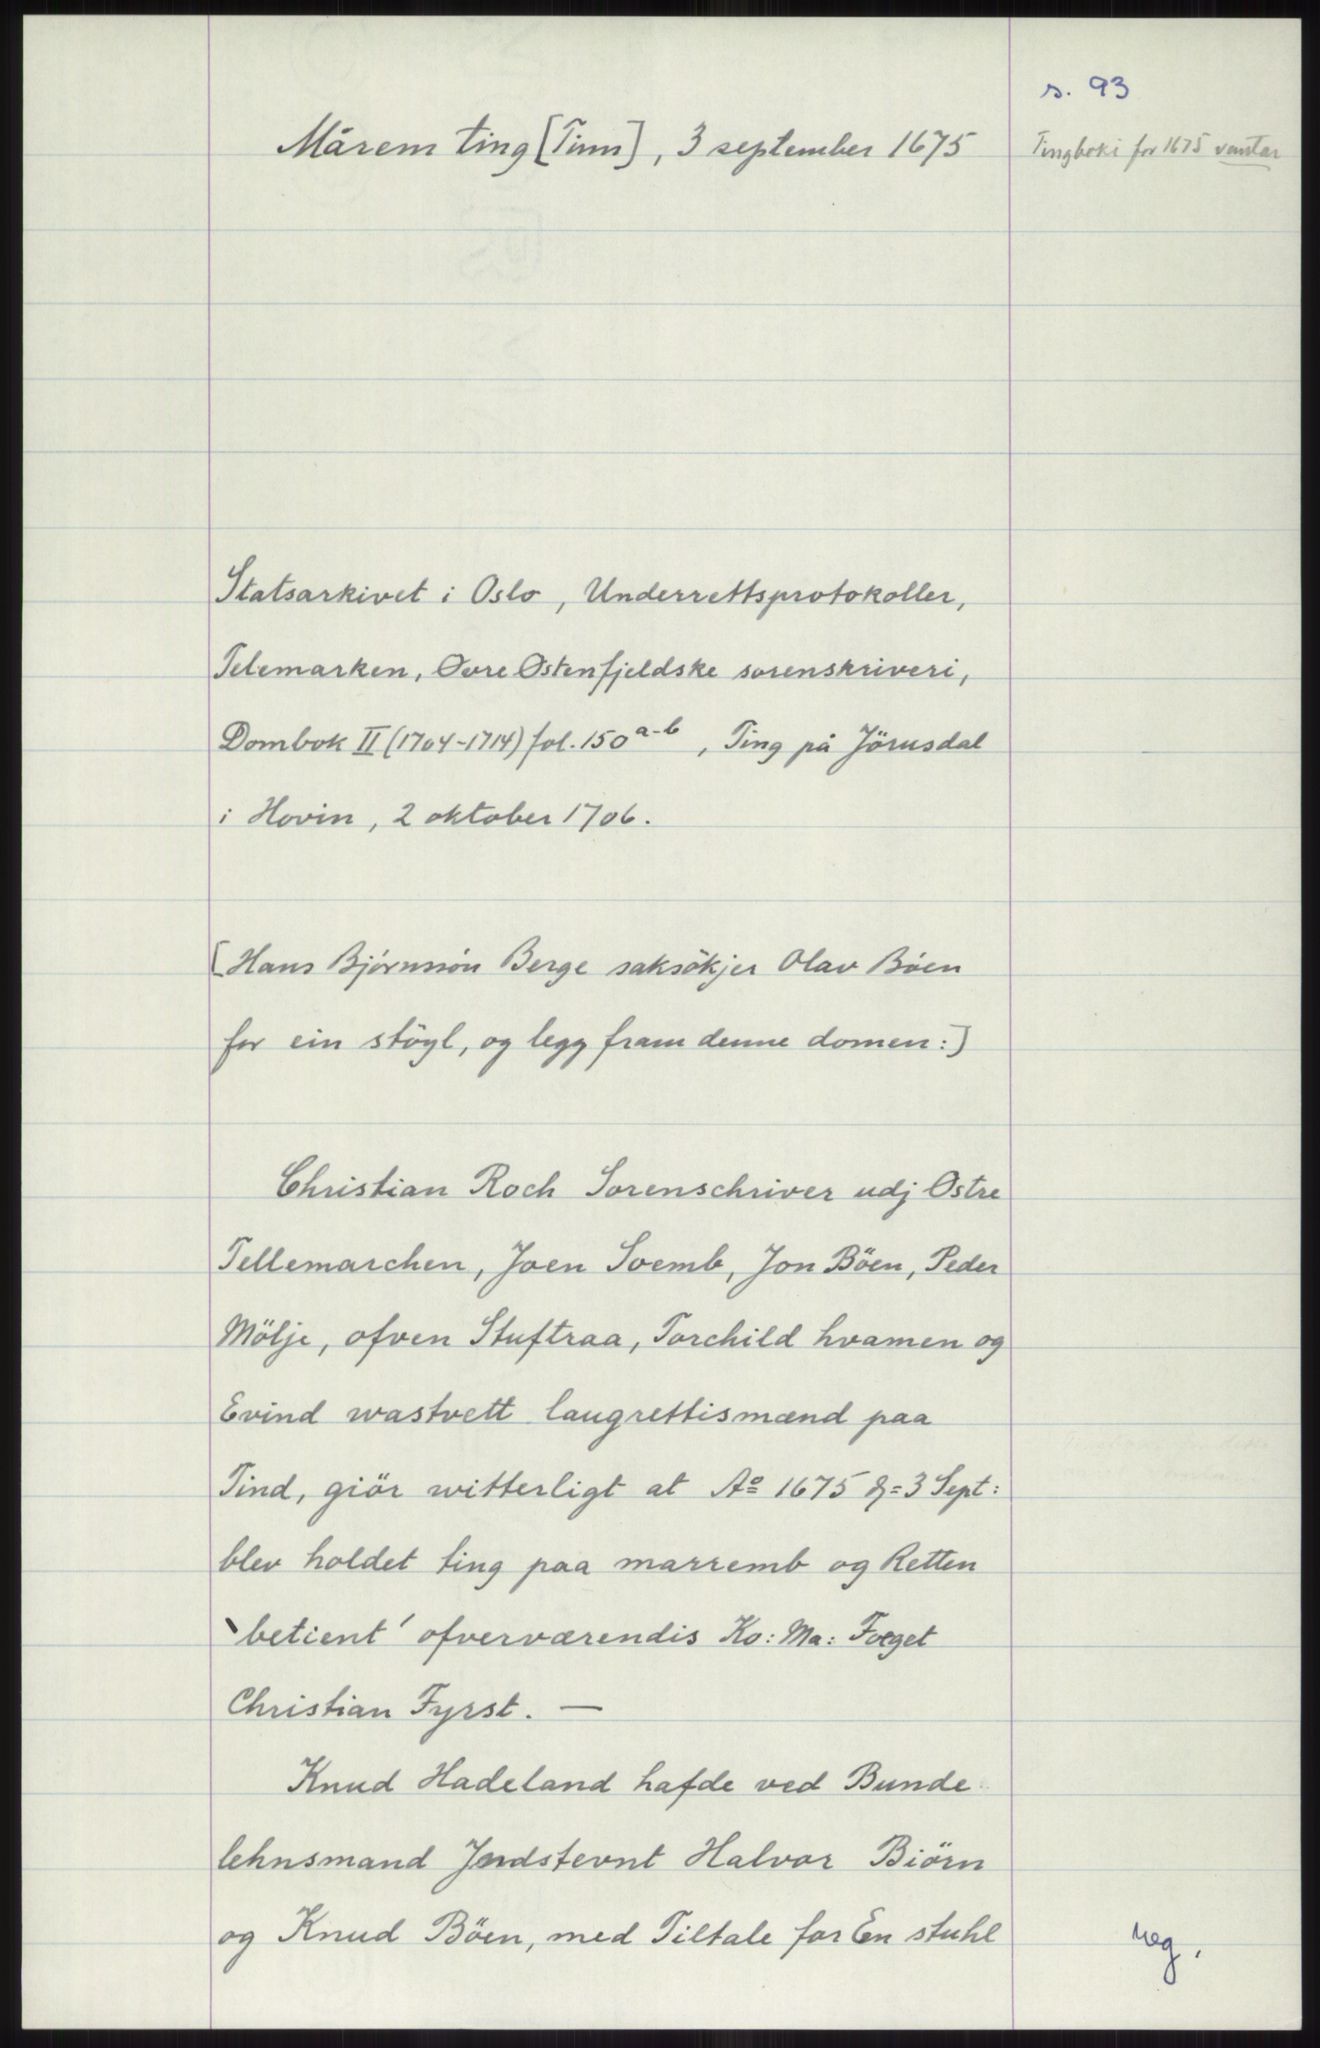 s. 93
Mårem ting [Tinn], 3 september 1675
Tingboki for 1675 vantar
Statsarkivet i Oslo, Underrettsprotokoller,
Telemarken, Øvre Østenfjeldske sorenskriveri,
Dombok II (1704-1714) fol. 150 a-b, Ting på Jörusdal
i Hovin, 2 oktober 1706.
[Hans Bjørnsøn Berge saksökjer Olav Böen
for ein stöyl, og legg fram denne domen:]
Christian Roch Sorenschriver udj Østre
Tellemarchen, Joen Soemb, Jon Böen, Peder
Mölje, ofven Stuftraa, Torchild hvamen og
Evind wastvett laugrettismænd paa
Tind, giör witterligt at Aº 1675 d= 3 Sept:
blev holdet ting paa marremb og Retten
`betient´ ofverværendis Ko: Ma: Foeget
Christian Fyrst. —
Knud Hadeland hafde ved Bunde
lehnsmand Jndstevnt Halvor Biörn
og Knud Böen, med Tiltale for En stuhl
reg.